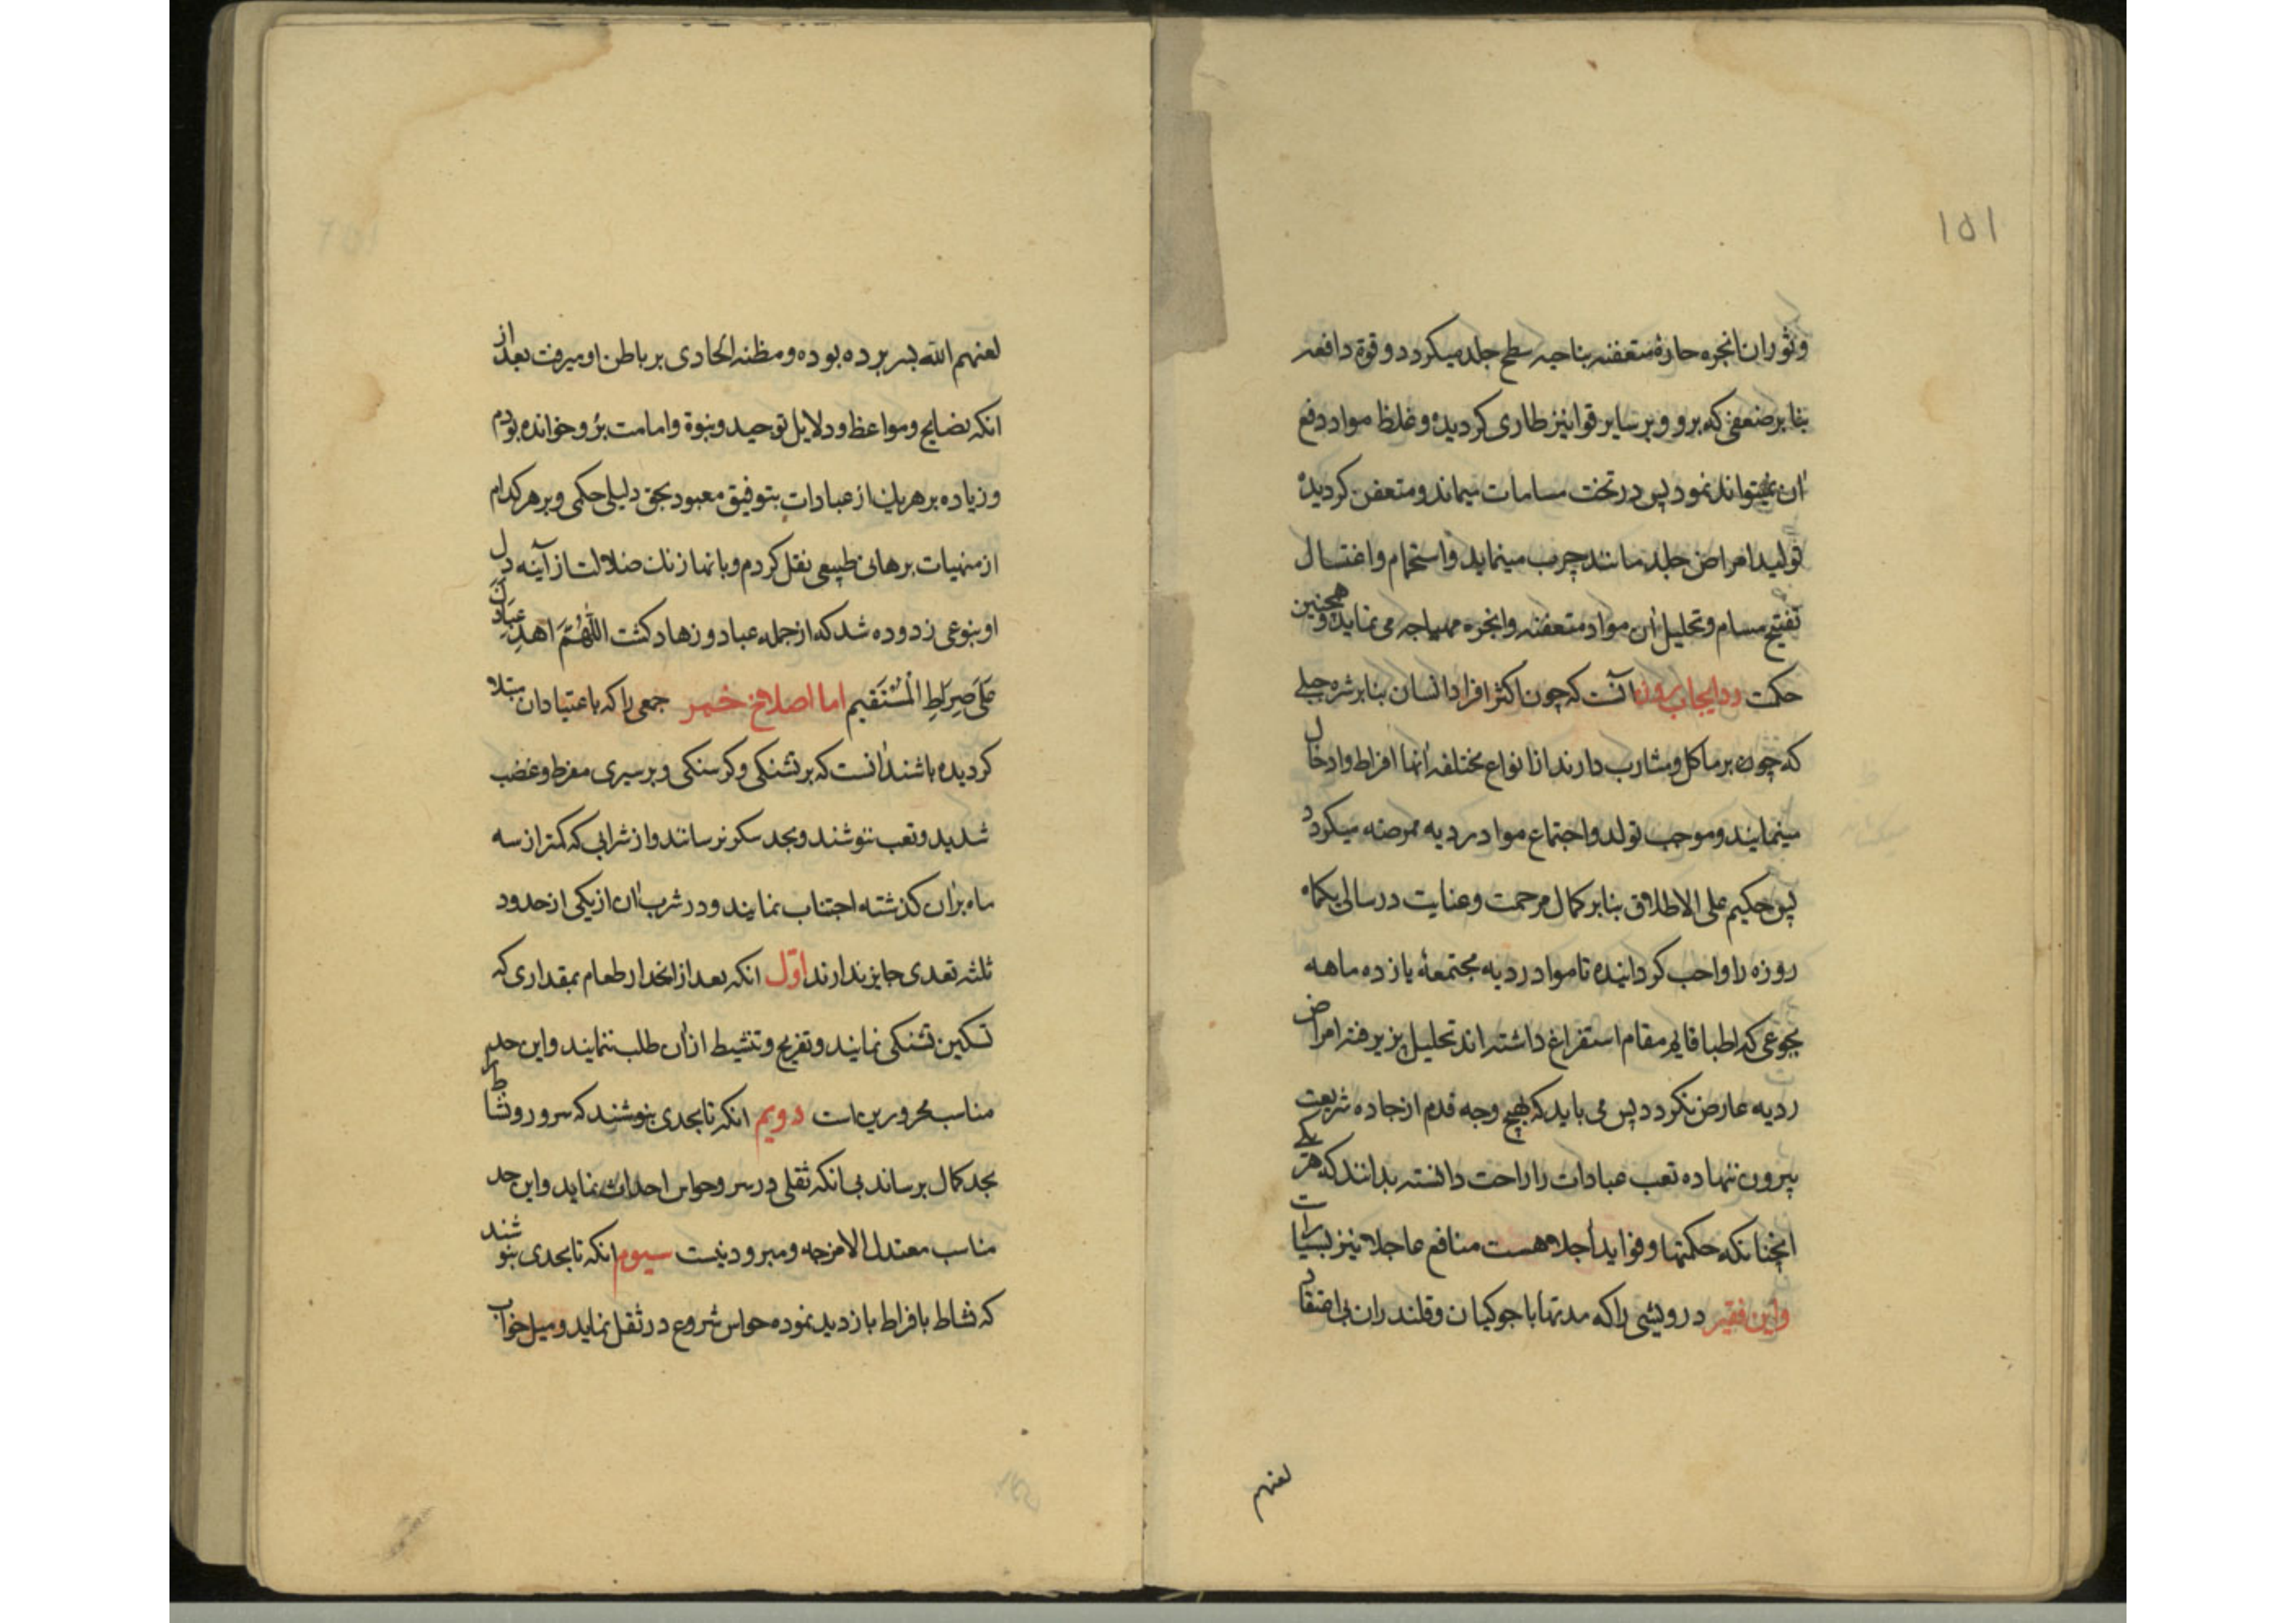 ۱۵۱
وثوران ابخره حارهٔ متعفنه بناحیه سطح جلد میکردد و قوة دافعه
بنا بر ضعفی که برو و بر سایر قوا نیز طاری کردیده و غلظ مواد دفع
ان نمیتواند نمود پس در تحت مسامات میماند و متعفن کردیده
تولید امراض جلد مانند جرب مینماید و استحمام و اغتسال
تفتیح مسام و تحلیل ان مواد متعفنه و ابخره مهیاجه می نماید و همچنین
حکمت در ایجاب روزه آنست که چون اکثر افراد انسان بنا بر شره جبلی
که چون بر ماکل و مشارب دارند از انواع مختلفه انها افراط و ادخال
مینمایند و موجب تولد و اجتماع مواد ردیه ممرضه میکردد
پس حکیم علی الاطلاق بنا بر کمال مرحمت و عنایت در سالی یکماه
روزه را واجب کردانیده تا مواد ردیه مجتمعهٔ یازده ماهه
بجوعی که اطبا قایم مقام استفراغ داشته اند تحلیل پزیرفته امراض
ردیه عارض نکردد پس می باید که بهیچ وجه قدم از جاده شریعت
بیرون ننهاده تعب عبادات را راحت دانسته بدانند که هر یکی
انچنانکه حکمتها و فواید اجلا هست منافع عاجلا نیز بسیار است
واین فقیر درویشی را که مدتها با جوکیان و قلندران بی اعتقاد
لعنهم
لعنهم الله بسر برده بوده و مظنه الحادی بر باطن او میرفت بعد از
انکه نصایح و مواعظ و دلایل توحید و نبوة و امامت برو خوانده بودم
و زیاده بر هر یک از عبادات بتوفیق معبود بحق دلیلی حکمی و بر هر کدام
از منهیات برهانی طبیعی نقل کردم و بانها زنک ضلالت از آینه دل
او بنوعی زدوده شد که از جمله عباد و زهاد کشت اللّهُمَّ اهدِ عِبَادَكَ
عَلَی صِرَاطِ الْمُسْتَقیم اما اصلاح خمر جمعی را که باعتیاد ان مبتلا
کردیده باشند انست که بر تشنکی و کرسنکی و بر سیری مفرط و غضب
شدید و تعب ننوشند و بحد سکر نرسانند و از شرابی که کمتر از سه
ماه بران کذشته اجتناب نمایند و در شرب ان از یکی از حدود
ثلثه تعدی جایز ندارند اوّل انکه بعد از انحدار طعام بمقداری که
تسکین تشنکی نمایند و تفریح و تنشیط از ان طلب ننمایند و این حد
مناسب محرورین است دویم انکه تا بحدی بنوشند که سرور و نشاط
بحد کمال برساند بی انکه ثقلی در سر و حواس احداث نماید و این حد
مناسب معتدل الامزجه و مبرودینست سیوم انکه تا بحدی بنوشند
که نشاط بافراط بازدید نموده حواس شروع در ثقل نماید و میل خواب